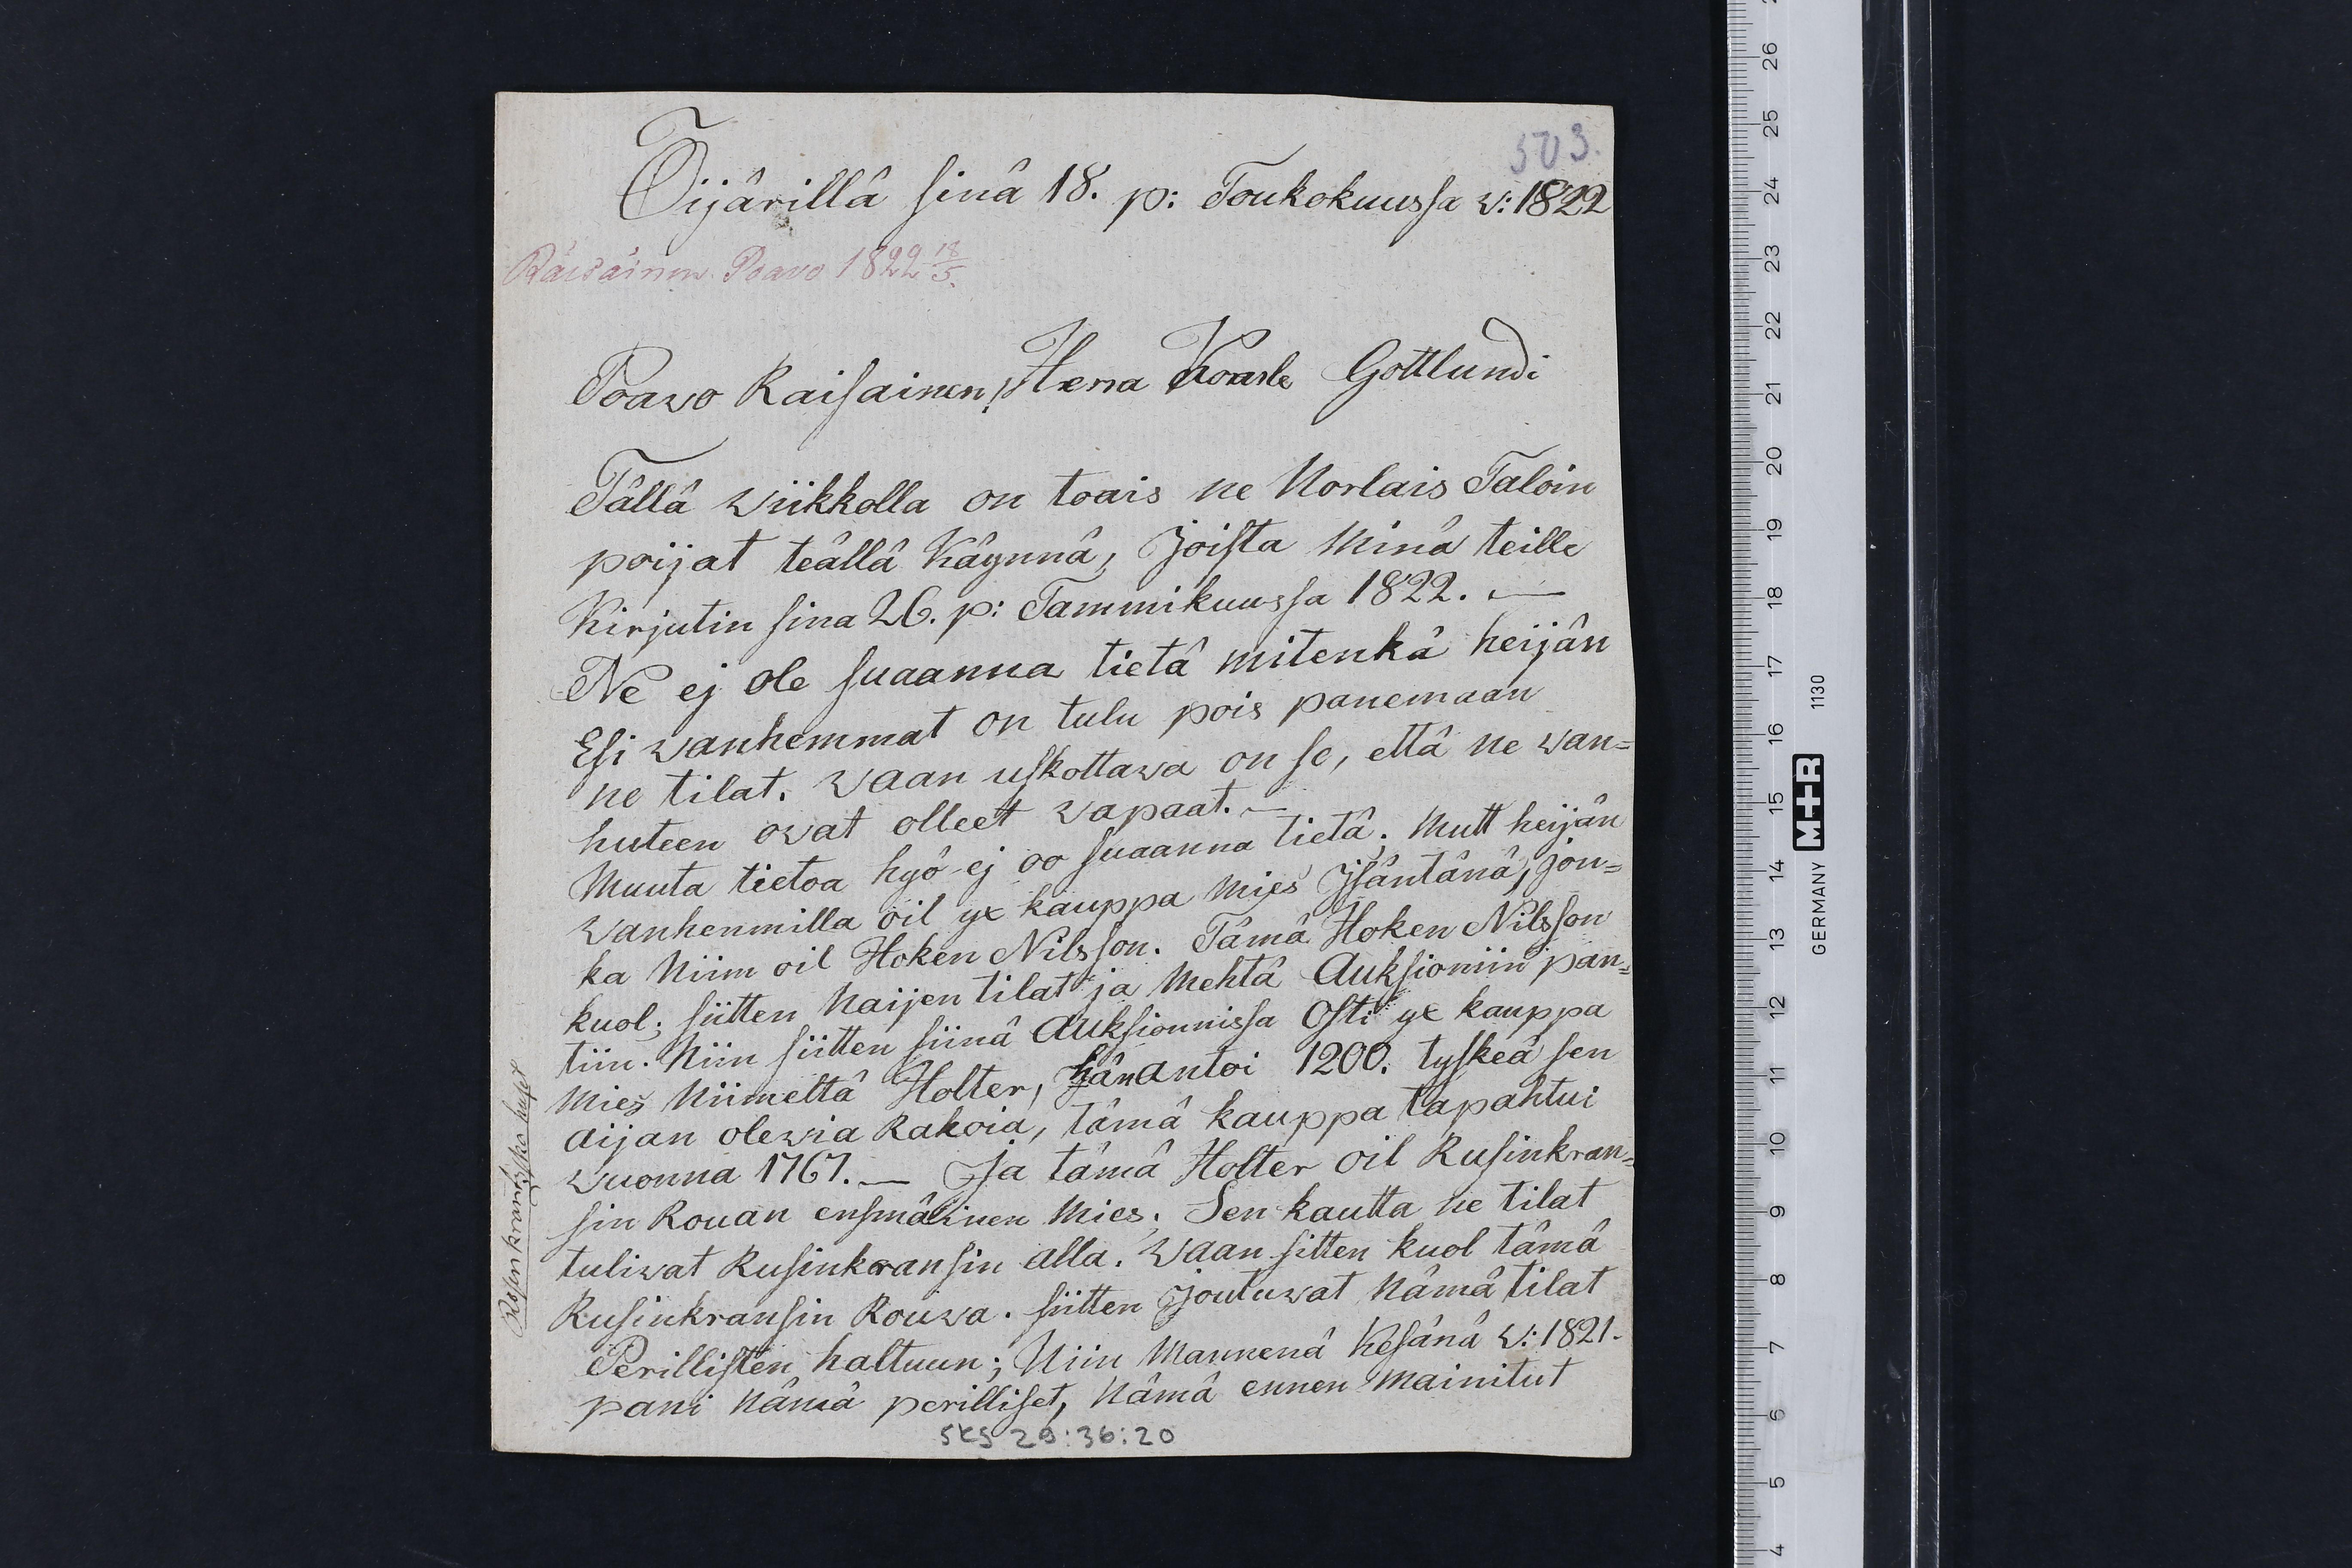 503.
Öijärillä sinä 18. p: Toukokuussa w: 1822
Räisäinen. Poavo 1822 18/5.
Poawo Raisainen, Herra Koarle Gottlundi
Tällä wiikkolla on toais ne Norlais Taloin
poijat teällä Käynnä, Joista Minä teille
Kirjutin sina 26. p: Tammikuussa 1822. —
Ne ej ole suaanna tietä mitenkä heijän
Esi wanhemmat on tulu pois panemaan
ne tilat. waan uskottawa on se, että ne wan=
huteen owat olleet wapaat. —
Muuta tietoa hyö ej oo suaanna tietä; Mutt heijän
wanhenmilla oil yx kauppa Mies Jsäntänä, jon=
ka Niim oil Hoken Nilsson. Tämä Hoken Nilsson
kuol; siitten Naijen tilat ja Mehtä Auksioniin pan=
tiin. Niin siitten siinä Auksionnissa Osti yx kauppa
Mies Niimeltä Holter, hän antoi 1200. tyskeä sen
aijan olewia Rahoia, tämä kauppa tapahtui
wuonna 1767. — Ja tämä Holter oil Rusinkran=
sin Rouan ensmäinen Mies; Sen kautta ne tilat
tuliwat Rusinkransin alla. Waan sitten kuol tämä
Rusinkransin Rouwa. siitten Joutuwat Nämä tilat
Perillisten haltuun; Niin Mannenä Kesänä w: 1821.
pani Nämä perilliset, Nämä ennen Mainitut
Rosenkrantzska huset
SKS 29:36:20
GERMANY M+R 1130
26
25
24
23
22
21
20
19
18
17
16
15
14
13
12
11
10
9
8
7
6
5
4